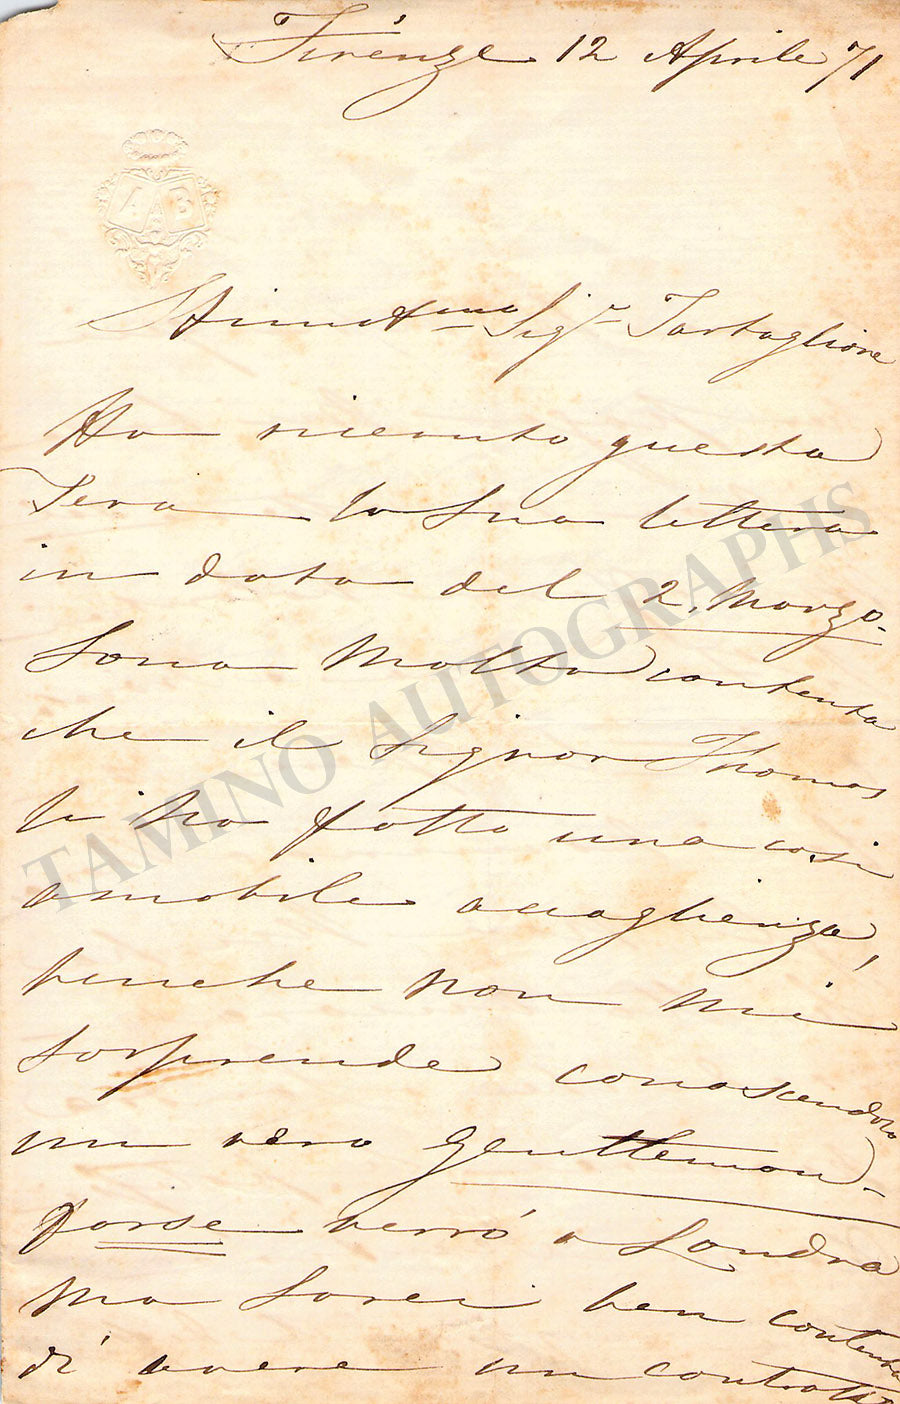 Firenze 12 Aprile 71
AB
Stimatmo Sigr Tartaglione
Ho ricevuto questa
sera la sua lettera
in data del 2. Marzo.
Sono Molto contenta
che il Signor Thomas
li ha fatto una cosi
amabile accoglienza,
benche non mi
sorprende conoscendolo
un vero gentleman.
forse verró a Londra
Ma sarei ben contenta
di avere un contratto
TAMINO AUTOGRAPHS